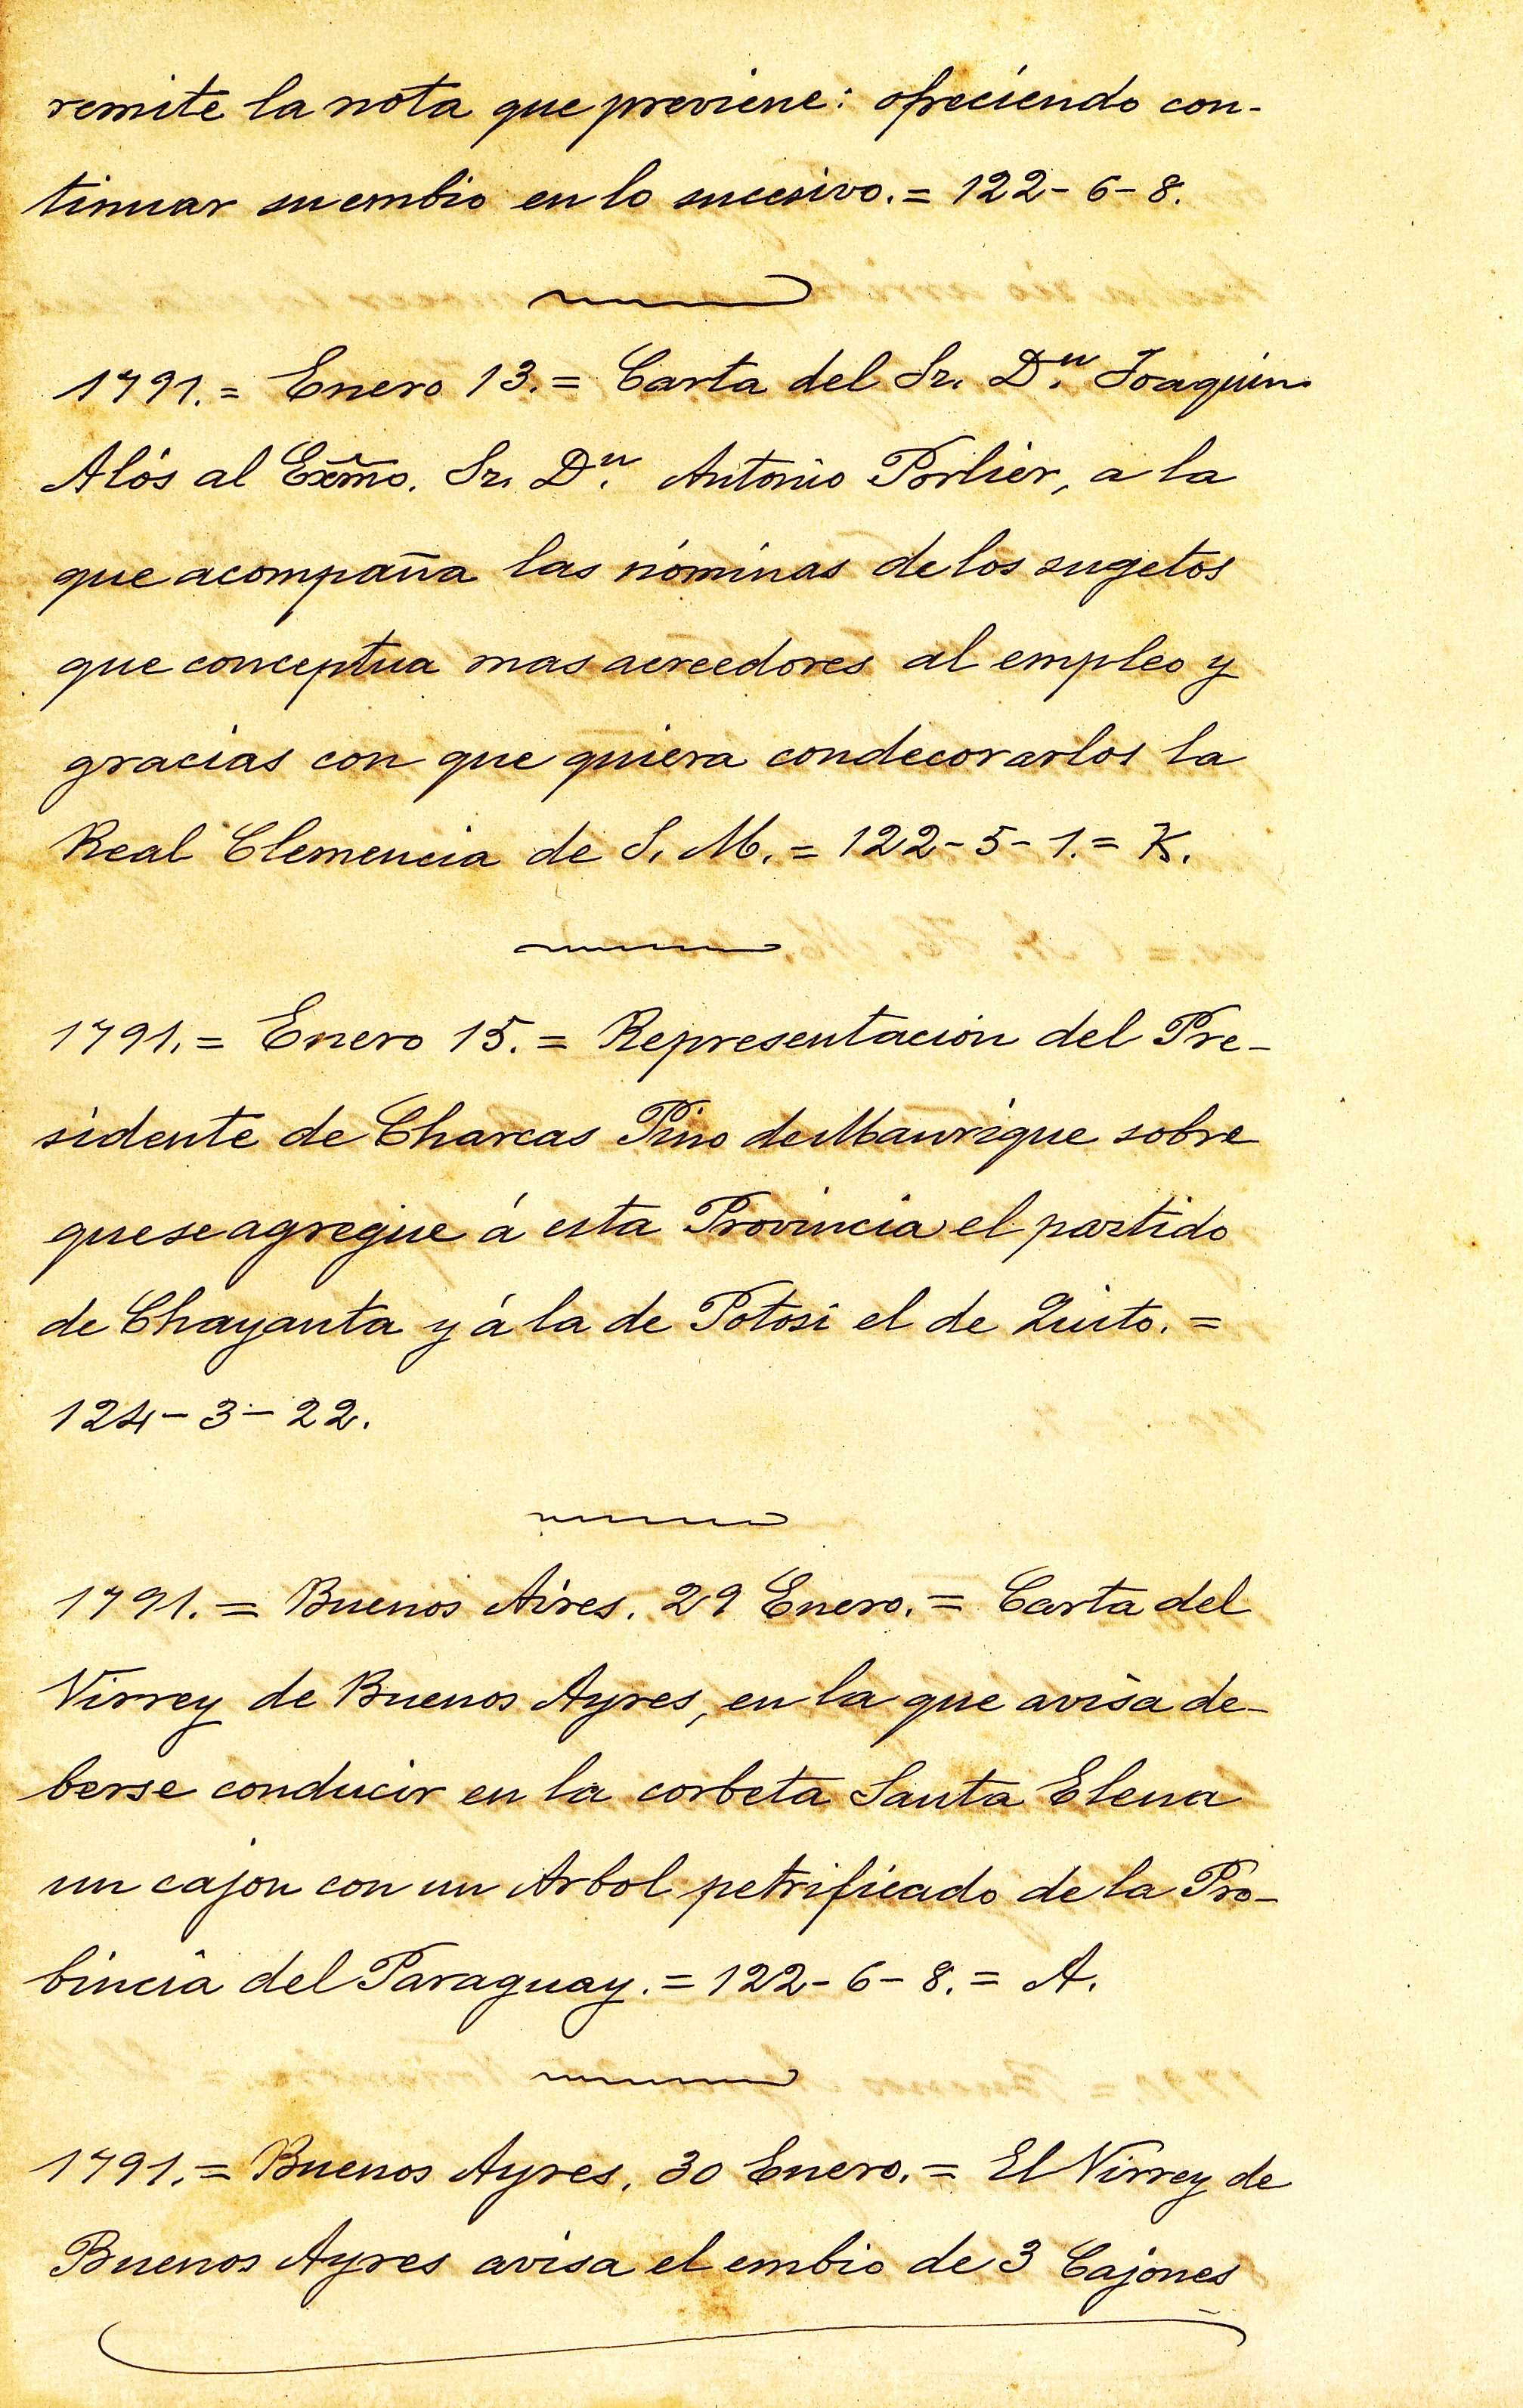 remite la nota que previene: ofreciendo con-
tinuar su embio en lo sucesivo. = 122-6-8.
1791. = Enero 13. = Carta del Sr. Dⁿ. Joaquin
Alós al Exm̃o. Sr. Dⁿ. Antonio Porlier, a la
que acompaña las nóminas de los sugetos
que conceptua mas acreedores al empleo y
gracias con que quiera condecorarlos la
Real Clemencia de S. M. = 122-5-1. = K.
1791. = Enero 15. = Representacion del Pre-
sidente de Charcas Pino de Manrique sobre
que se agregue á esta Provincia el partido
de Chayanta y á la de Potosi el de Quito. =
124-3-22.
1791. = Buenos Aires. 29 Enero. = Carta del
Virrey de Buenos Ayres, en la que avisa de-
berse conducir en la corbeta Santa Elena
un cajon con un Arbol petrificado de la Pro-
bincia del Paraguay. = 122-6-8. = A.
1791. = Buenos Ayres. 30 Enero. = El Virrey de
Buenos Ayres avisa el embio de 3 Cajones